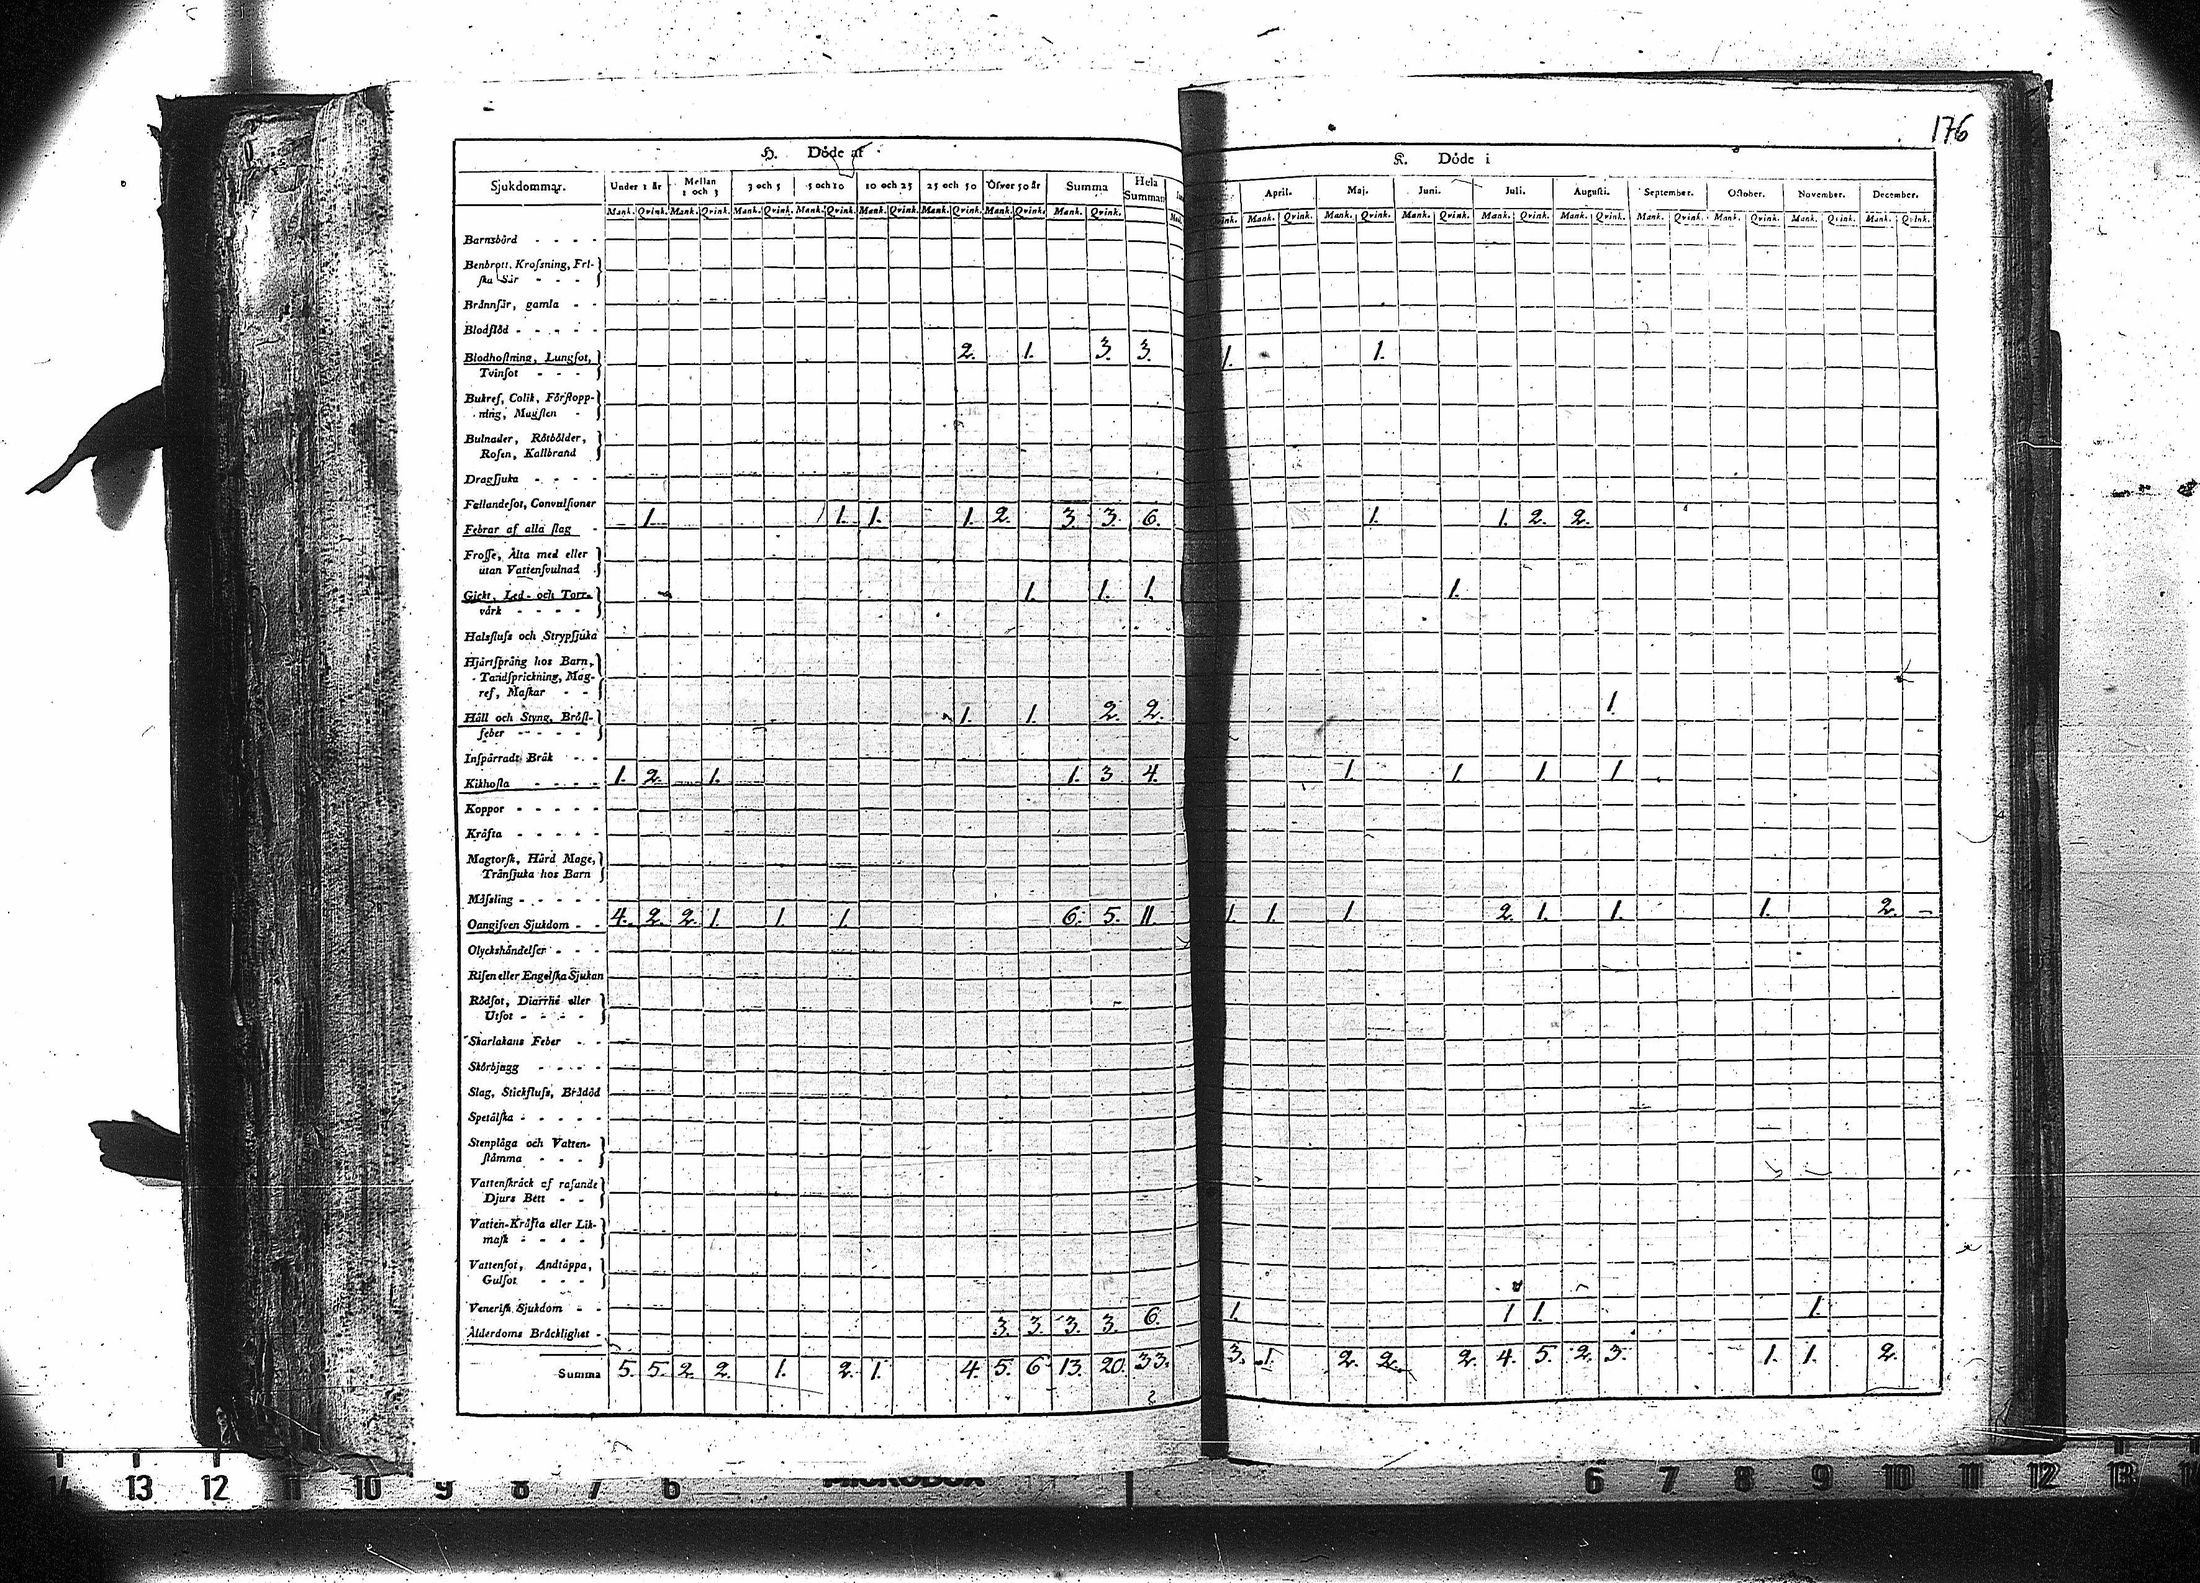 176
H. Döde af
K. Döde i
Sjukdommar. Under 1 år Mellan 1 och 3 3 och 5 5 och 10 10 och 25 25 och 50 Öfver 50 år Summa Hela Summan
April. Maj. Juni. Juli. Augusti. September. October. November. December.
Mank. Qvink. Mank. Qvink. Mank. Qvink. Mank. Qvink. Mank. Qvink. Mank. Qvink. Mank. Qvink. Mank. Qvink.
Mank. Qvink. Mank. Qvink. Mank. Qvink. Mank. Qvink. Mank. Qvink. Mank. Qvink. Mank. Qvink. Mank. Qvink. Mank. Qvink.
Barnsbörd
Benbrott, Krossning, Fri-
ska Sår
Brännsår, gamla
Blodflöd
Blodhostning, Lungsot, 2. 1. 3. 3. 1. 1.
Tvinsot
Bukref, Colik, Förstopp-
ning, Magsten
Bulnader, Rötbölder,
Rosen, Kallbrand
Dragsjuka
Fallandesot, Convulsioner
Febrar af alla slag 1. 1. 1. 1. 2. 3. 3. 6. 1. 1. 2. 2.
Frosse, Älta med eller
utan Vattensvulnad
Gickt, Led- och Torr- 1. 1. 1. 1.
värk
Halsfluss och Strypsjuka
Hjärtsprång hos Barn,
Tandsprickning, Mag-
ref, Maskar
Håll och Styng, Bröst- 1. 1. 2. 2. 1.
feber
Inspärradt Bråk
Kikhosta 1. 2. 1. 1. 3. 4. 1. 1. 1. 1.
Koppor
Kräfta
Magtorsk, Hård Mage,
Tränsjuka hos Barn
Mässling
Oangifven Sjukdom 4. 2. 2. 1. 1. 1. 6. 5. 11. 1. 1. 1. 2. 1. 1. 1. 2.
Olyckshändelser
Risen eller Engelska Sjukan
Rödsot, Diarrhé eller
Utsot
Skarlakans Feber
Skörbjugg
Slag, Stickfluss, Brådöd
Spetälska
Stenplåga och Vatten-
stämma
Vattenskräck af rasande
Djurs Bett
Vatten-Kräfta eller Lik-
mask
Vattensot, Andtäppa,
Gulsot
Venerisk Sjukdom
Ålderdoms Bräcklighet 3. 3. 3. 3. 6. 1. 1 1. 1.
Summa 5. 5. 2. 2. 1. 2. 1. 4. 5. 6 13. 20. 33. 3. 1. 2. 2. 2. 4. 5. 2. 3. 1. 1. 2.
14 13 12 11 10 9 8 7 6 MICROBOX 6 7 8 9 10 11 12 13 14